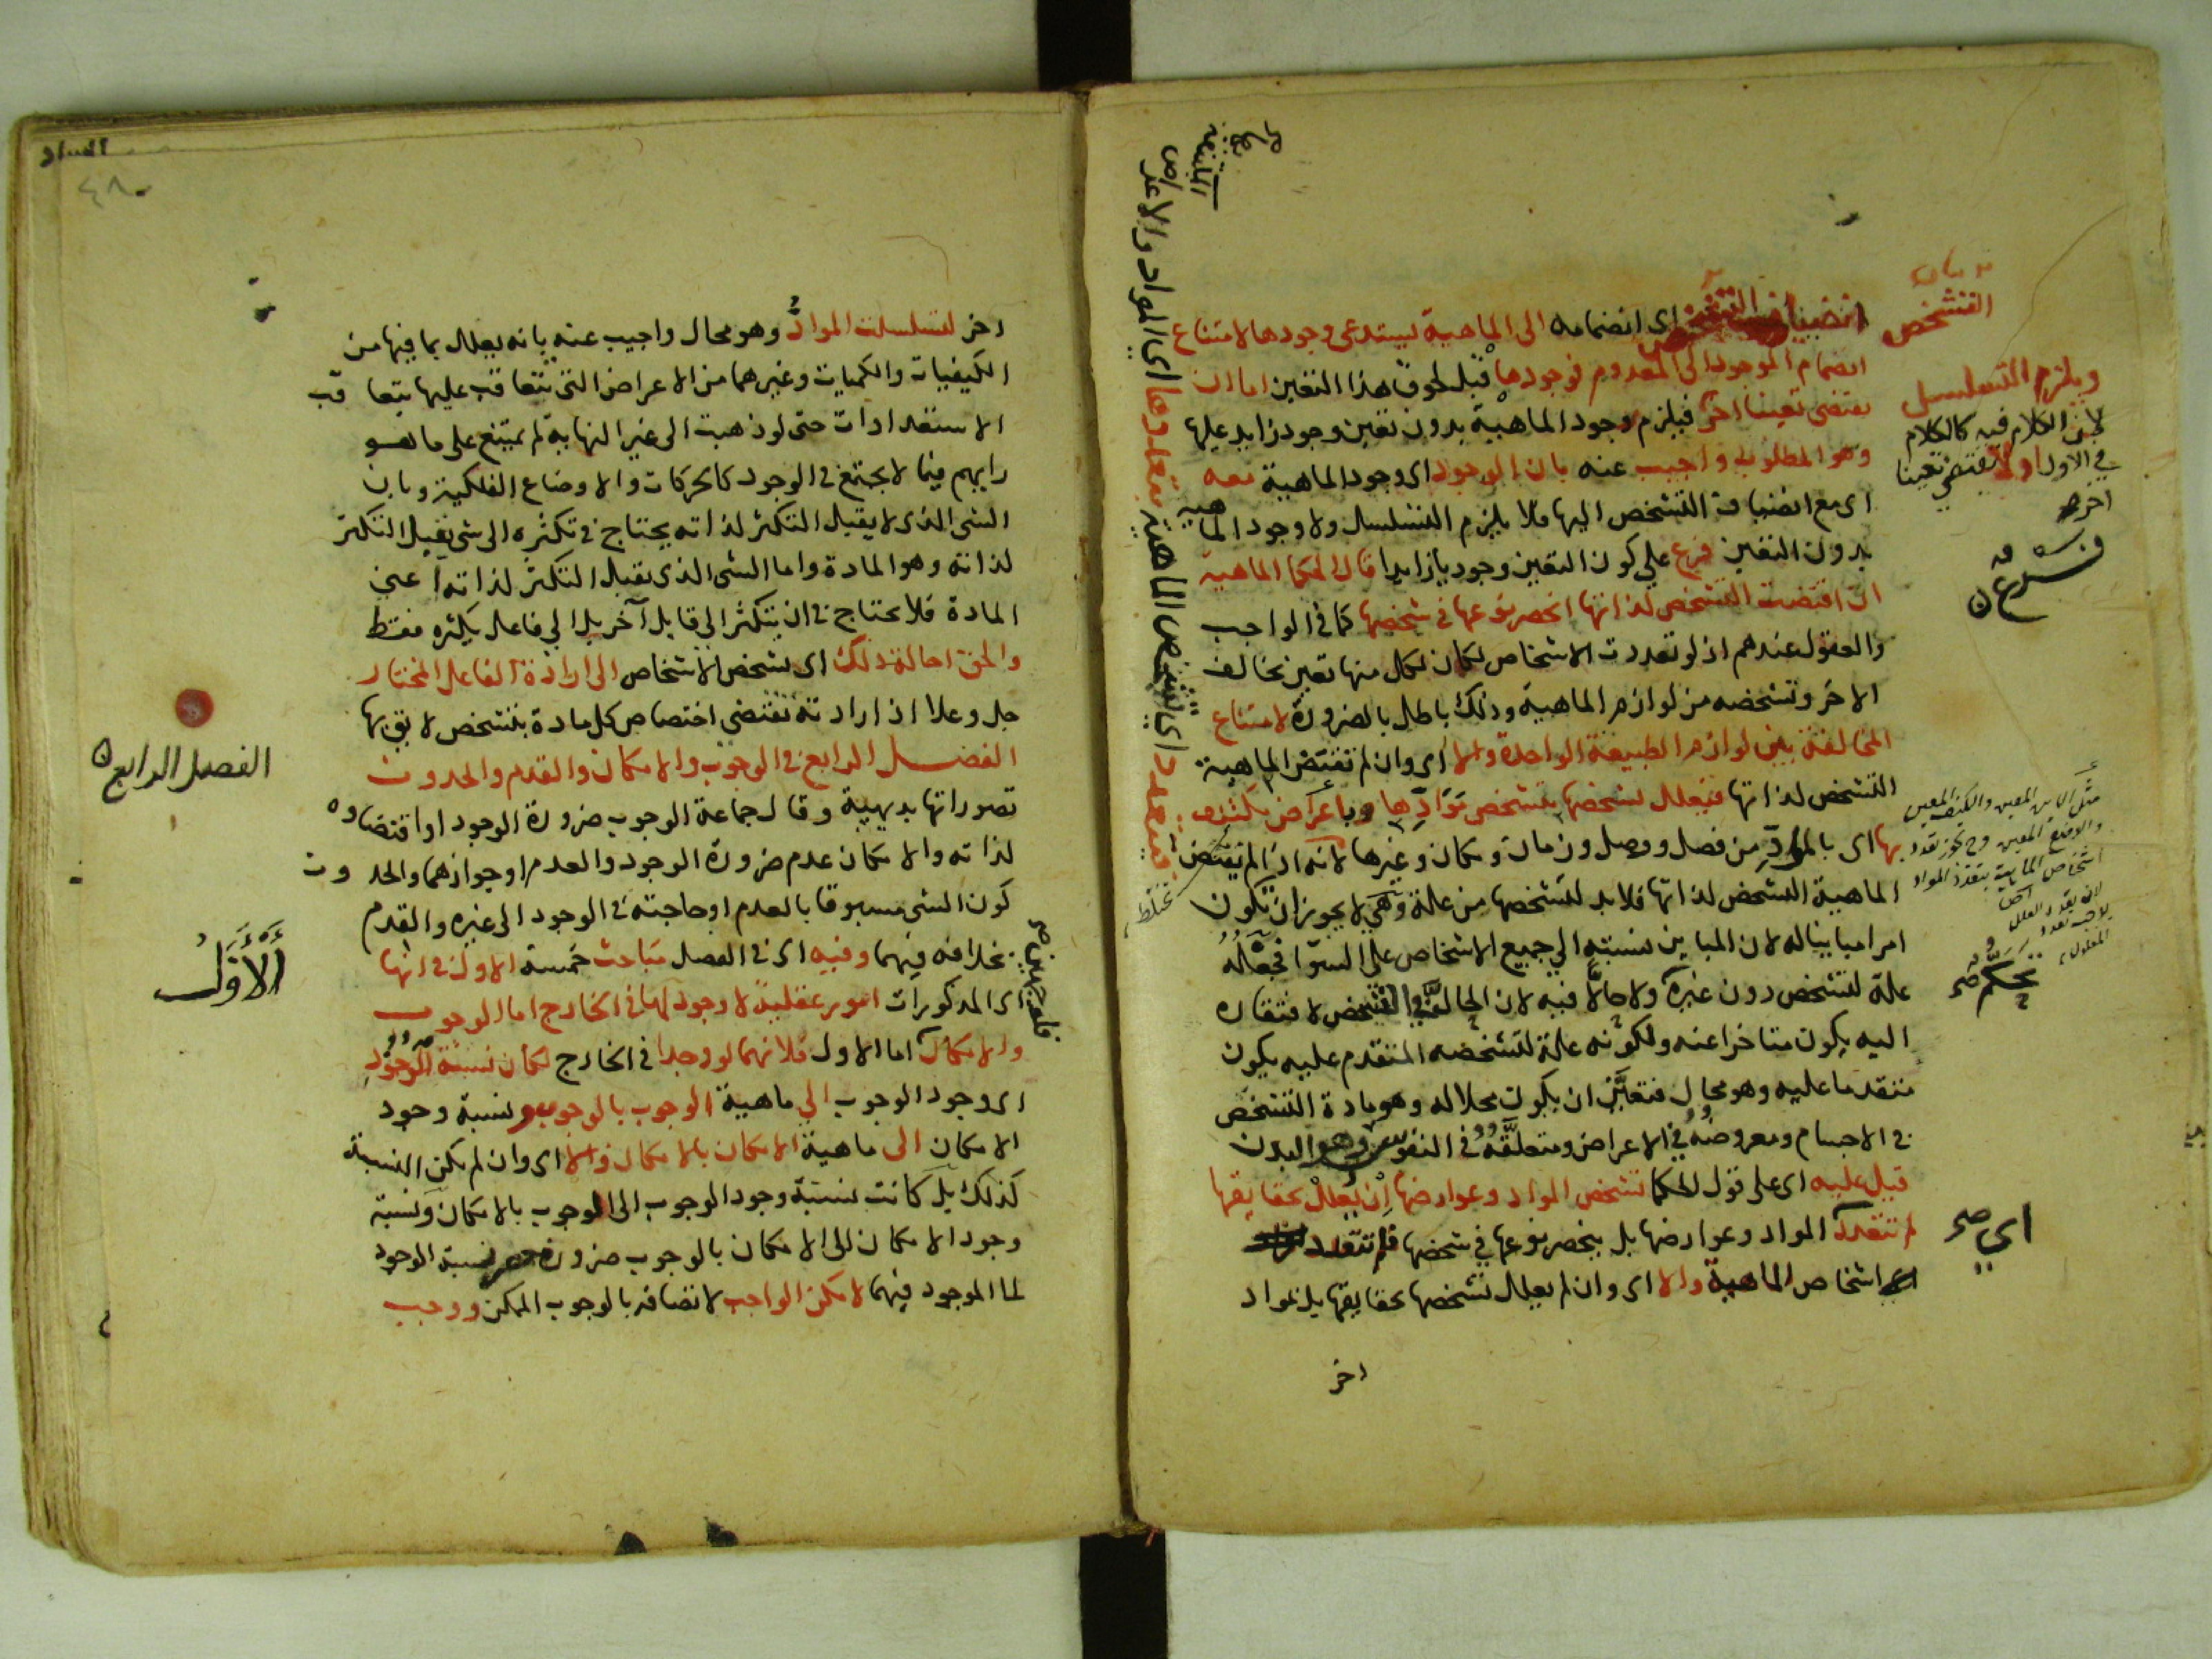 انضياف التشخص اى انضمامه الى الماهية يستدعى وجودها لامتناع
انضمام الموجود الى المعدوم فوجودها قبل لحوق هذا التعين اما ان
يقتضى تعينا اخر فيلزم وجود الماهية بدون تعين وجود زايد عليها
وهو المطلوب واجيب عنه بان الوجود اى وجود الماهية معه
اى مع انضياف التشخص اليها فلا يلزم التسلسل ولا وجود الماهية
بدون التعين فرع على كون التعين وجوديا زايدا قال الحكما الماهية
ان اقتضت التشخص لذاتها انحصر نوعها فى شخصها كما فى الواجب
والعقول عندهم اذ لو تعددت الاشخاص لكان لكل منها تعين يخالف
الاخر وتشخصه من لوازم الماهية وذلك باطل بالضرورة لامتناع
المخالفة بين لوازم الطبيعة الواحدة والا اى وان لم تقتض الماهية
التشخص لذاتها فيعلل تشخصها بتشخص موادها وباعراض تكتنف
بها اى بالمواد من فصل ووصل وزمان ومكان وغيرها لانه اذا لم تقتض
الماهية التشخص لذاتها فلا بد لتشخصها من علة وهى لا يجوز ان تكون
امرا مباينا له لان المباين نسبته الى جميع الاشخاص على السوا فجعله
علة لتشخص دون غيره ولا حالا فيه لان الحال فى التشخص لافتقاره
اليه يكون متاخرا عنه ولكونه علة لتشخصه المتقدم عليه يكون
متقدما عليه وهو محال فتعين ان يكون محلا له وهو مادة التشخص
فى الاجسام ومعروضه فى الاعراض ومتعلقه فى النفوس وهو البدن
قيل عليه اى على قول الحكما تشخص المواد وعوارضها ان يعلل بحقايقها
لم تتعدد المواد وعوارضها بل ينحصر نوعها فى شخصها فلم تتعدد
اشخاص الماهية والا اى وان لم يعلل تشخصها بحقايقها بل بمواد
اخر
التشخص
ويلزم التسلسل
لان الكلام فيه كالكلام
فى الاول اولا يقتضى تعينا
اخر
مثل الاين المعين والكيف المعين
والوضع المعين
اشخاص الماهية بتعدد المواد
تحكم صح
اى صح
اى المواد والاعراض
المكتنفة
بها صح
اخر لتسلسلت المواد وهو محال واجيب عنه بانه يعلل بما فيها من
الكيفيات والكميات وغيرهما من الاعراض التى تتعاقب عليها بتعاقب
الاستعدادات حتى لو ذهبت الى غير النهاية لم يمتنع على ما هو
رايهم فيما لا يجتمع فى الوجود كالحركات والاوضاع الفلكية وبان
الشى الذى لا يقبل التكثر لذاته يحتاج فى تكثره الى شى يقبل التكثر
لذاته وهو المادة واما الشى الذى يقبل التكثر لذاته اعنى
المادة فلا يحتاج فى ان يتكثر الى قابل آخر بل الى فاعل يكثره فقط
والحق احالة ذلك اى تشخص الاشخاص الى ارادة الفاعل المختار
جل وعلا اذ ارادته تقتضى اختصاص كل مادة بتشخص لايق بها
الفصل الرابع فى الوجوب والامكان والقدم والحدوث
تصوراتها بديهية وقال جماعة الوجوب ضرورة الوجود او اقتضاوه
لذاته والامكان عدم ضرورة الوجود والعدم او جوازهما والحدوث
كون الشى مسبوقا بالعدم او حاجته فى الوجود الى غيره والقدم
بخلافه فيهما وفيه اى فى الفصل مباحث خمسة الاول فى انها
اى المذكورات امور عقلية لا وجود لها فى الخارج اما الوجوب
والامكان اما الاول فلانهما لو وجدا فى الخارج لكان نسبة الوجود
اى وجود الوجوب الى ماهية الوجوب بالوجوب ونسبة وجود
الامكان الى ماهية الامكان بالامكان والا اى وان لم تكن النسبة
كذلك بل كانت نسبة وجود الوجوب الى الوجوب بالامكان ونسبة
وجود الامكان الى الامكان بالوجوب ضرورة نسبة الوجود
لما الموجود فيهما لامكن الواجب لاتصافه بالوجوب الممكن ووجب
الفصل الرابع
الاول